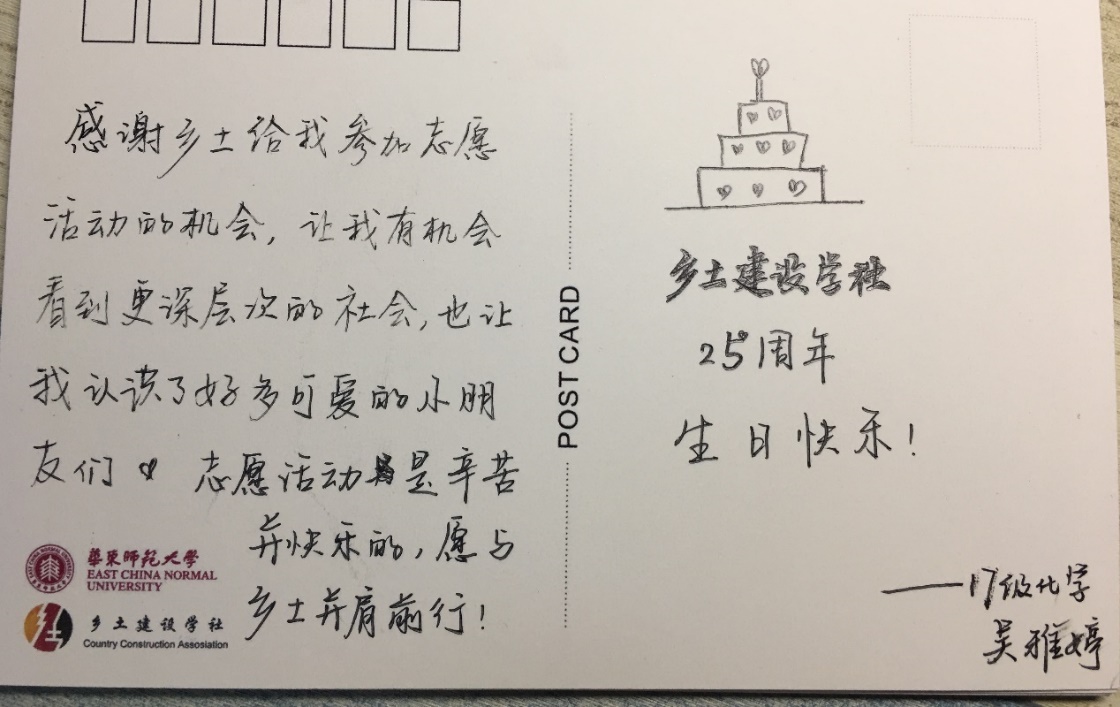 感谢乡土给我参加志愿
活动的机会，让我有机会
看到更深层次的社会，也让
我认识了好多可爱的小朋
友们 志愿活动是辛苦
并快乐的，愿与
乡土并肩前行！
華東師範大學
EAST CHINA NORMAL
UNIVERSITY
乡土建设学社
Country Construction Assosiation
POST CARD
乡土建设学社
25周年
生日快乐！
——17级化学
吴雅婷